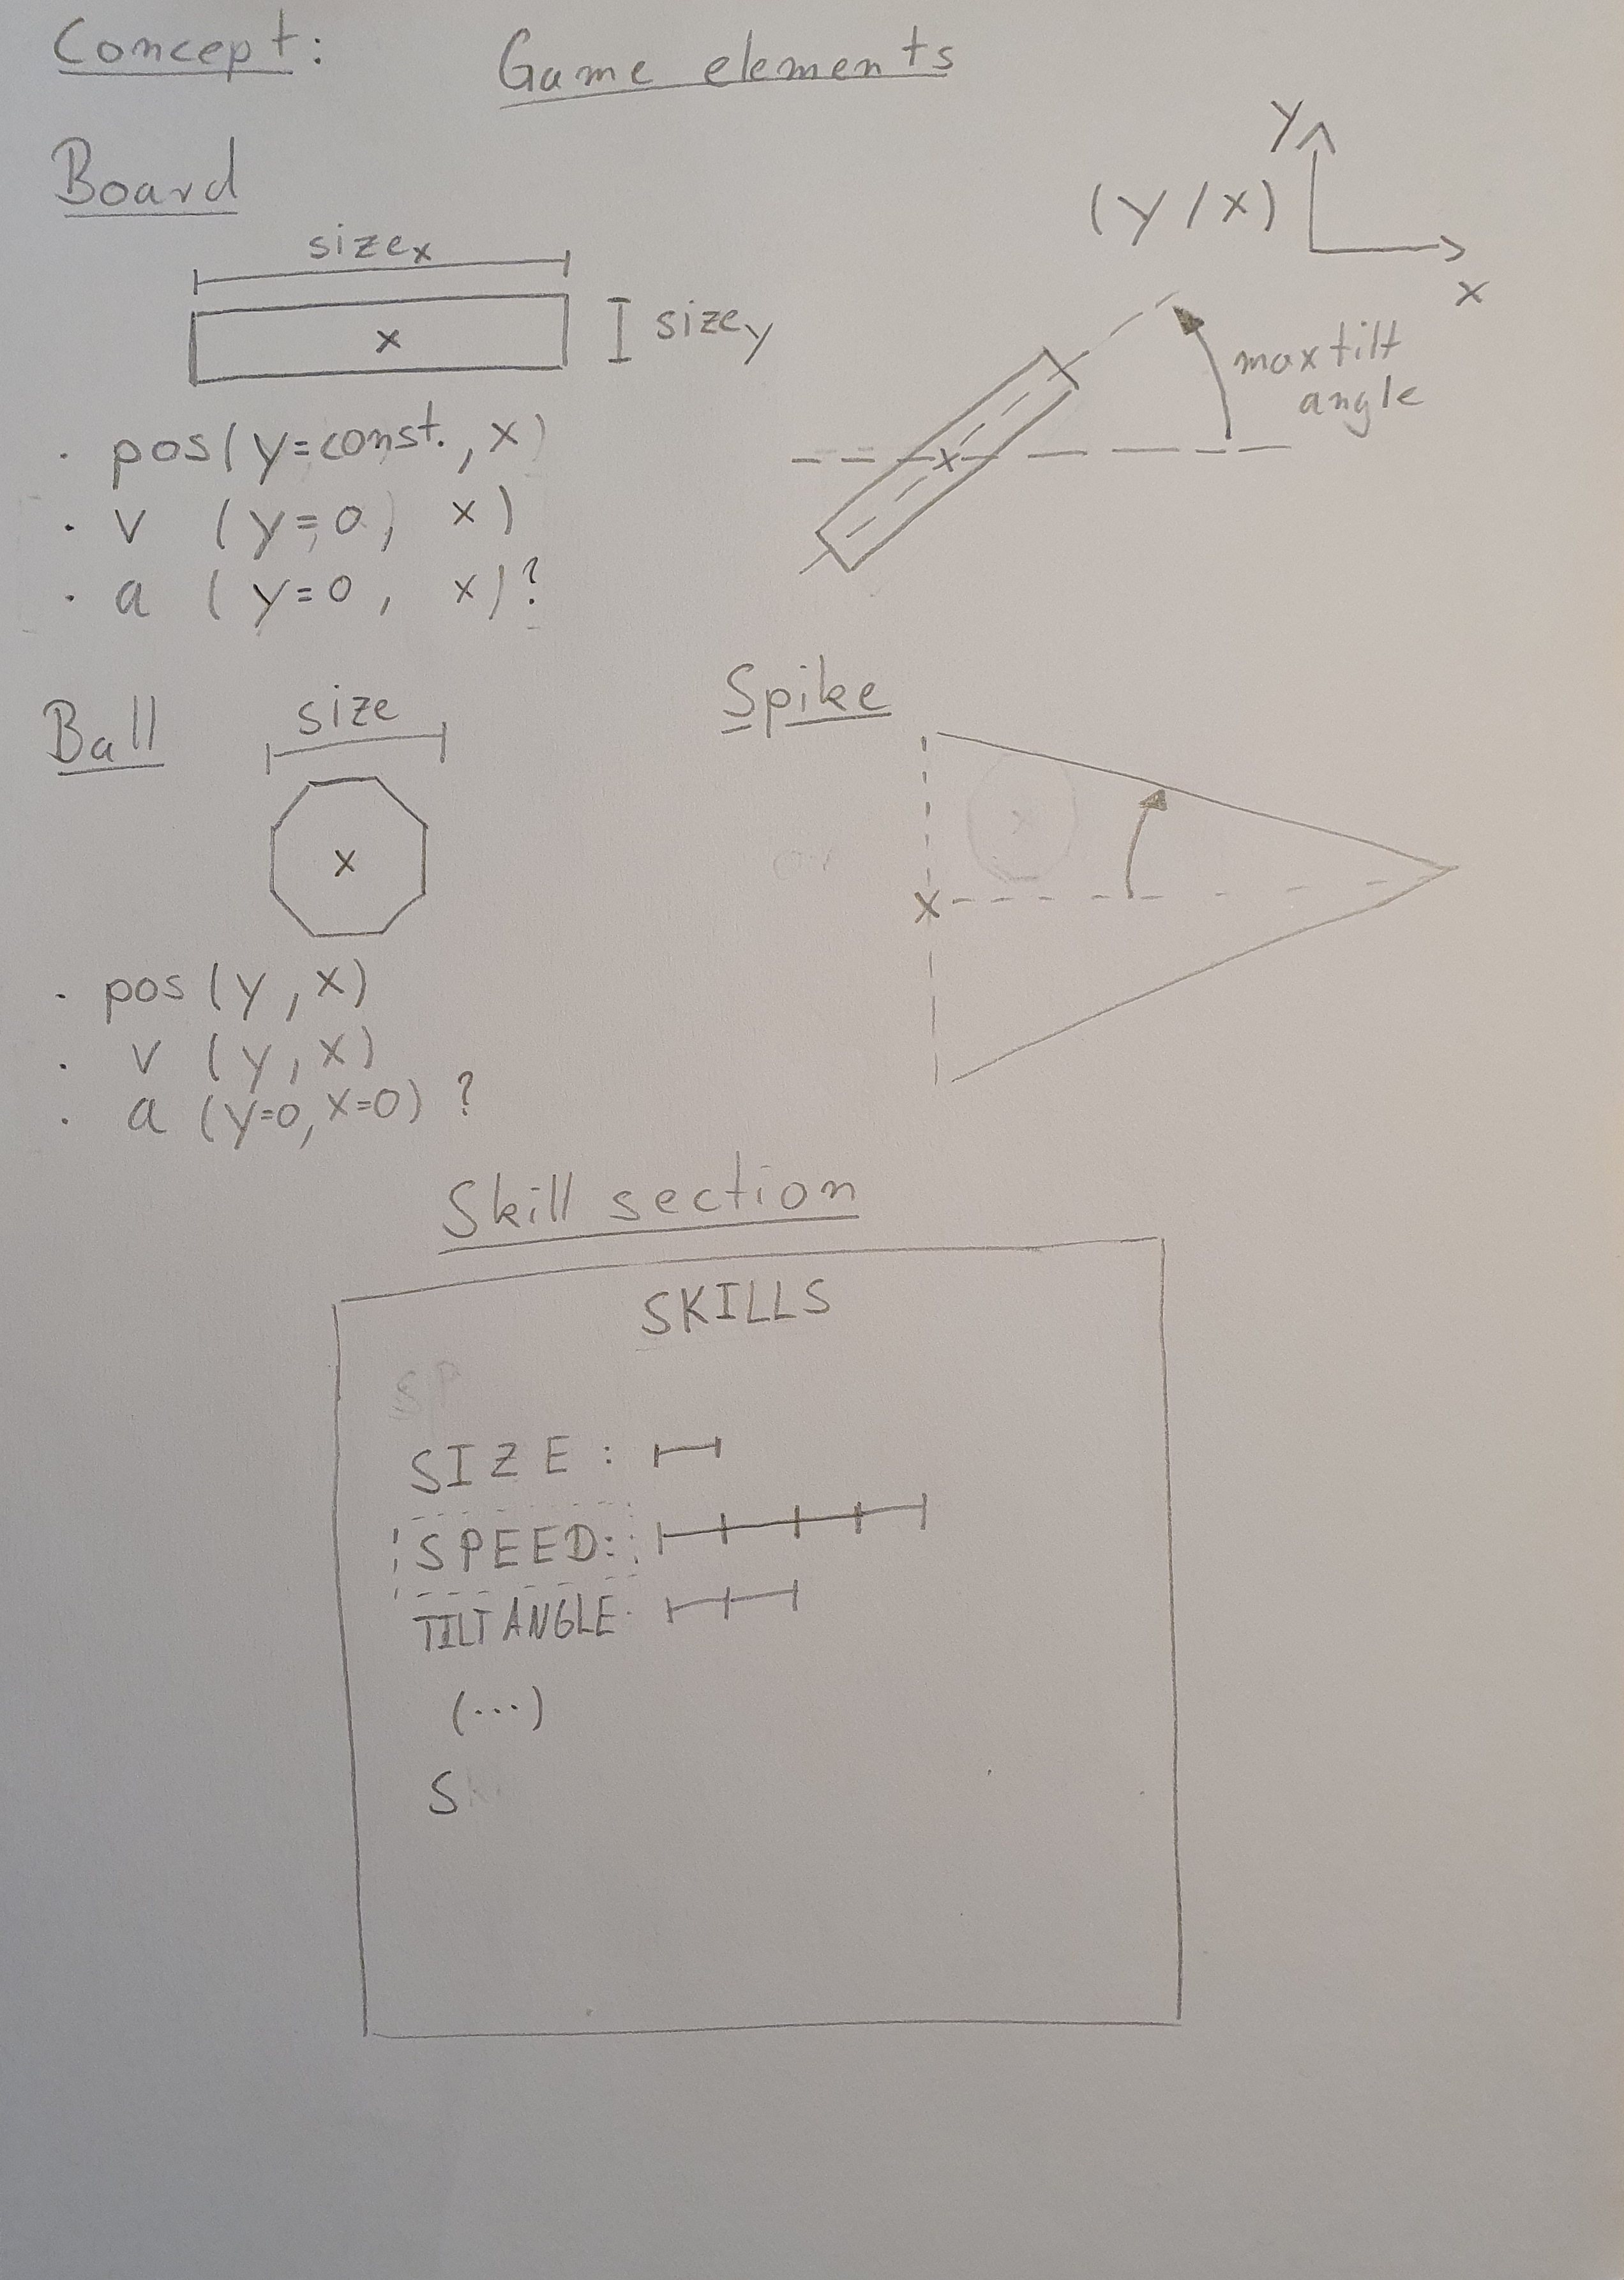 Concept: Game elements
Board
size x
x
size y
· pos(y=const., x)
· v (y=0, x)
· a (y=0, x)?
y
(y/x)
x
max tilt
angle
x
Ball
size
x
· pos(y, x)
· v (y, x)
· a (y=0, x=0) ?
Spike
x
x
Skill section
SKILLS
SP
SIZE :
SPEED:
TILT ANGLE
(...)
S